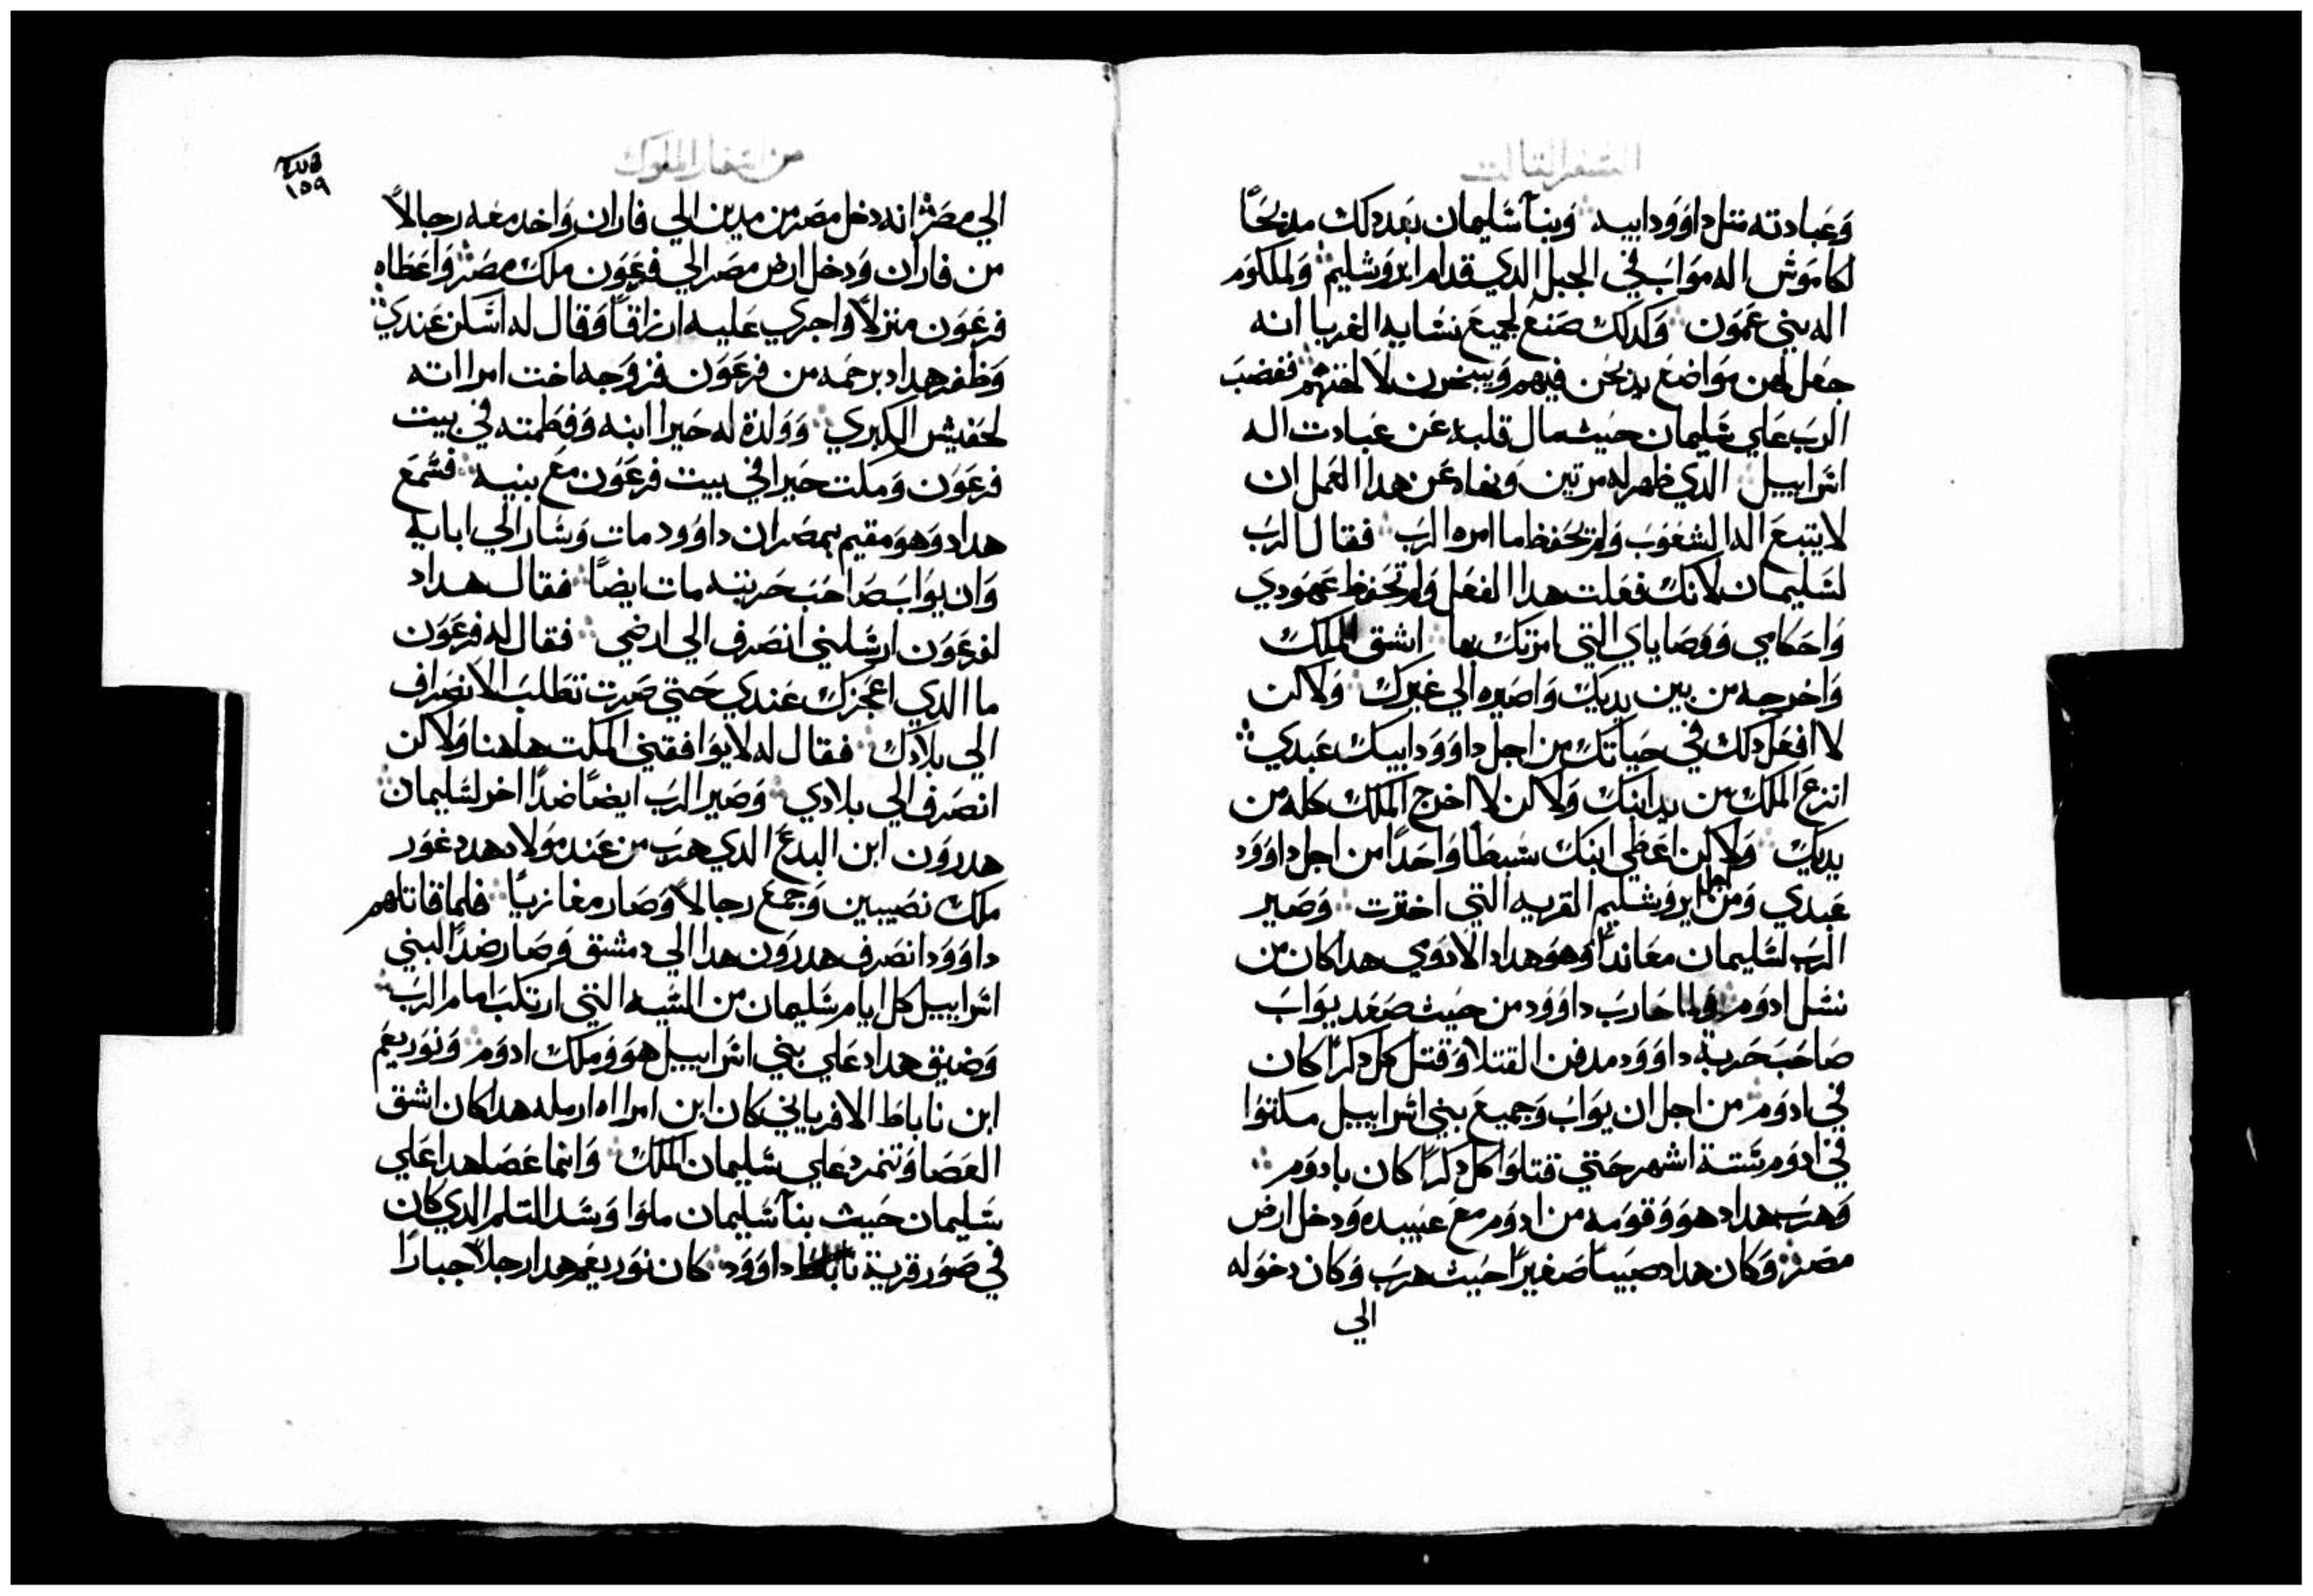 السفر التالت
وعبادته متل داوود ابيه وبنا سليمان بعد دلك مدبحًا
لكاموش اله مواب في الجبل الدي قدام ايروشليم ولملكوم
اله بني عمون وكدلك صنع لجميع نسايه الغربا انه
جعل لهن مواضع يدبحن فيهم ويبخرن لالهتهم فغضب
الرب علي سليمان حيث مال قلبه عن عبادت اله
اسراييل الدي ظهر له مرتين ونهاه عن هدا العمل ان
لا يتبع الها الشعوب ولم يحفظ ما امره الرب فقال الرب
لسليمان لانك فعلت هدا الفعل ولم تحفظ عهودي
واحكامي ووصاياي التي امرتك بها اشق الملك
واخرجه من بين يديك واصيره الي غيرك ولاكن
لا افعل دلك في حياتك من اجل داوود ابيك عبدي
انزع الملك من يد ابنك ولاكن لا اخرج الملك كله من
يديك ولاكن اعطي ابنك سبطًا واحدًا من اجل داوود
عبدي ومن اجل ايروشليم القريه التي اخترت وصير
الرب لسليمان معاندًا وهو هداد الادومي هدا كان من
نسل ادوم فلما حارب داوود من حيث صعد يواب
صاحب حربة داوود مدفن القتلا وقتل كل دكرًا كان
في ادوم من اجل ان يواب وجميع بني اسراييل مكتوا
في ادوم ستة اشهر حتي قتلوا كل دكرًا كان بادوم
وهرب هداد هو وقومه من ادوم مع عبيده ودخل ارض
مصر وكان هداد صبيًا صغيرًا حيث هرب وكان دخوله
الي
من اسفار الملوك
١٥٩
الي مصر انه دخل مصر من مدين الي فاران واخد معه رجالاً
من فاران ودخل ارض مصر الي فرعون ملك مصر واعطاه
فرعون منزلاً واجري عليه ارزاقًا وقال له اسكن عندي
وظفر هداد برحمه من فرعون فزوجه اخت امراته
لحفيس الكبري وولدة له حيرا ابنه وفطمته في بيت
فرعون ومكت حيرا في بيت فرعون مع بنيه فسمع
هداد وهو مقيم بمصر ان داوود مات وسار الي ابايه
وان يواب صاحب حربته مات ايضًا فقال هداد
لفرعون ارسلني انصرف الي ارضي فقال له فرعون
ما الدي اعجزك عندي حتي صرت تطلب الانصراف
الي بلادك فقال له لا يوافقني المكت هاهنا ولاكن
انصرف الي بلادي وصير الرب ايضًا ضدًا اخر لسليمان
هدرون ابن اليدع الدي هرب من عند مولاه هددغور
ملك نصيبين وجمع رجالاً وصار مغازيًا فلما قاتلهم
داوود انصرف هدرون هدا الي دمشق وصار ضدًا لبني
اسراييل كل ايام سليمان من السيه التي ارتكب امام الرب
وضيق هداد علي بني اسراييل هو وملك ادوم ونوربعم
ابن ناباط الافرياني كان ابن امراه ارمله هدا كان اشق
العصا وتمرد علي سليمان الملك وانما عصا هدا علي
سليمان حيث بنا سليمان ملوا وسد التلم الدي كان
في صور قرية داوود كان نوربعم هدا رجلاً جبارًا